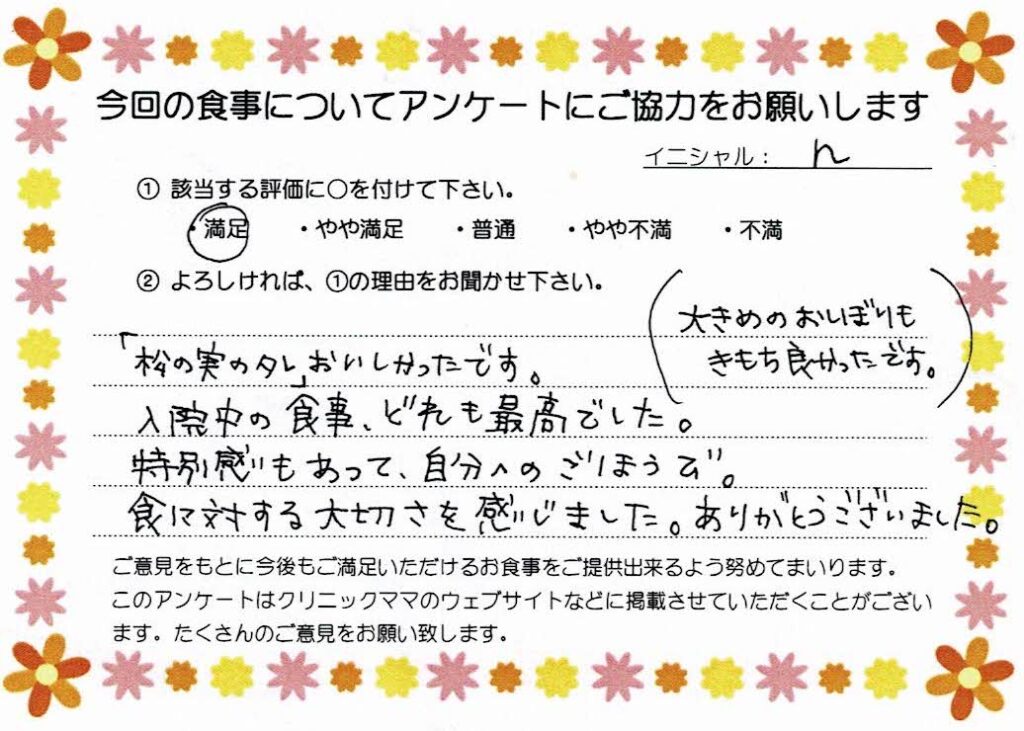 今回の食事についてアンケートにご協力をお願いします
イニシャル： h
① 該当する評価に○を付けて下さい。
・満足 ・やや満足 ・普通 ・やや不満 ・不満
② よろしければ、①の理由をお聞かせ下さい。
大きめのおしぼりも
きもち良かったです。
「松の実のタレ」おいしかったです。
入院中の食事、どれも最高でした。
特別感もあって、自分へのごほうび。
食に対する大切さを感じました。ありがとうございました。
ご意見をもとに今後もご満足いただけるお食事をご提供出来るよう努めてまいります。
このアンケートはクリニックママのウェブサイトなどに掲載させていただくことがござい
ます。たくさんのご意見をお願い致します。